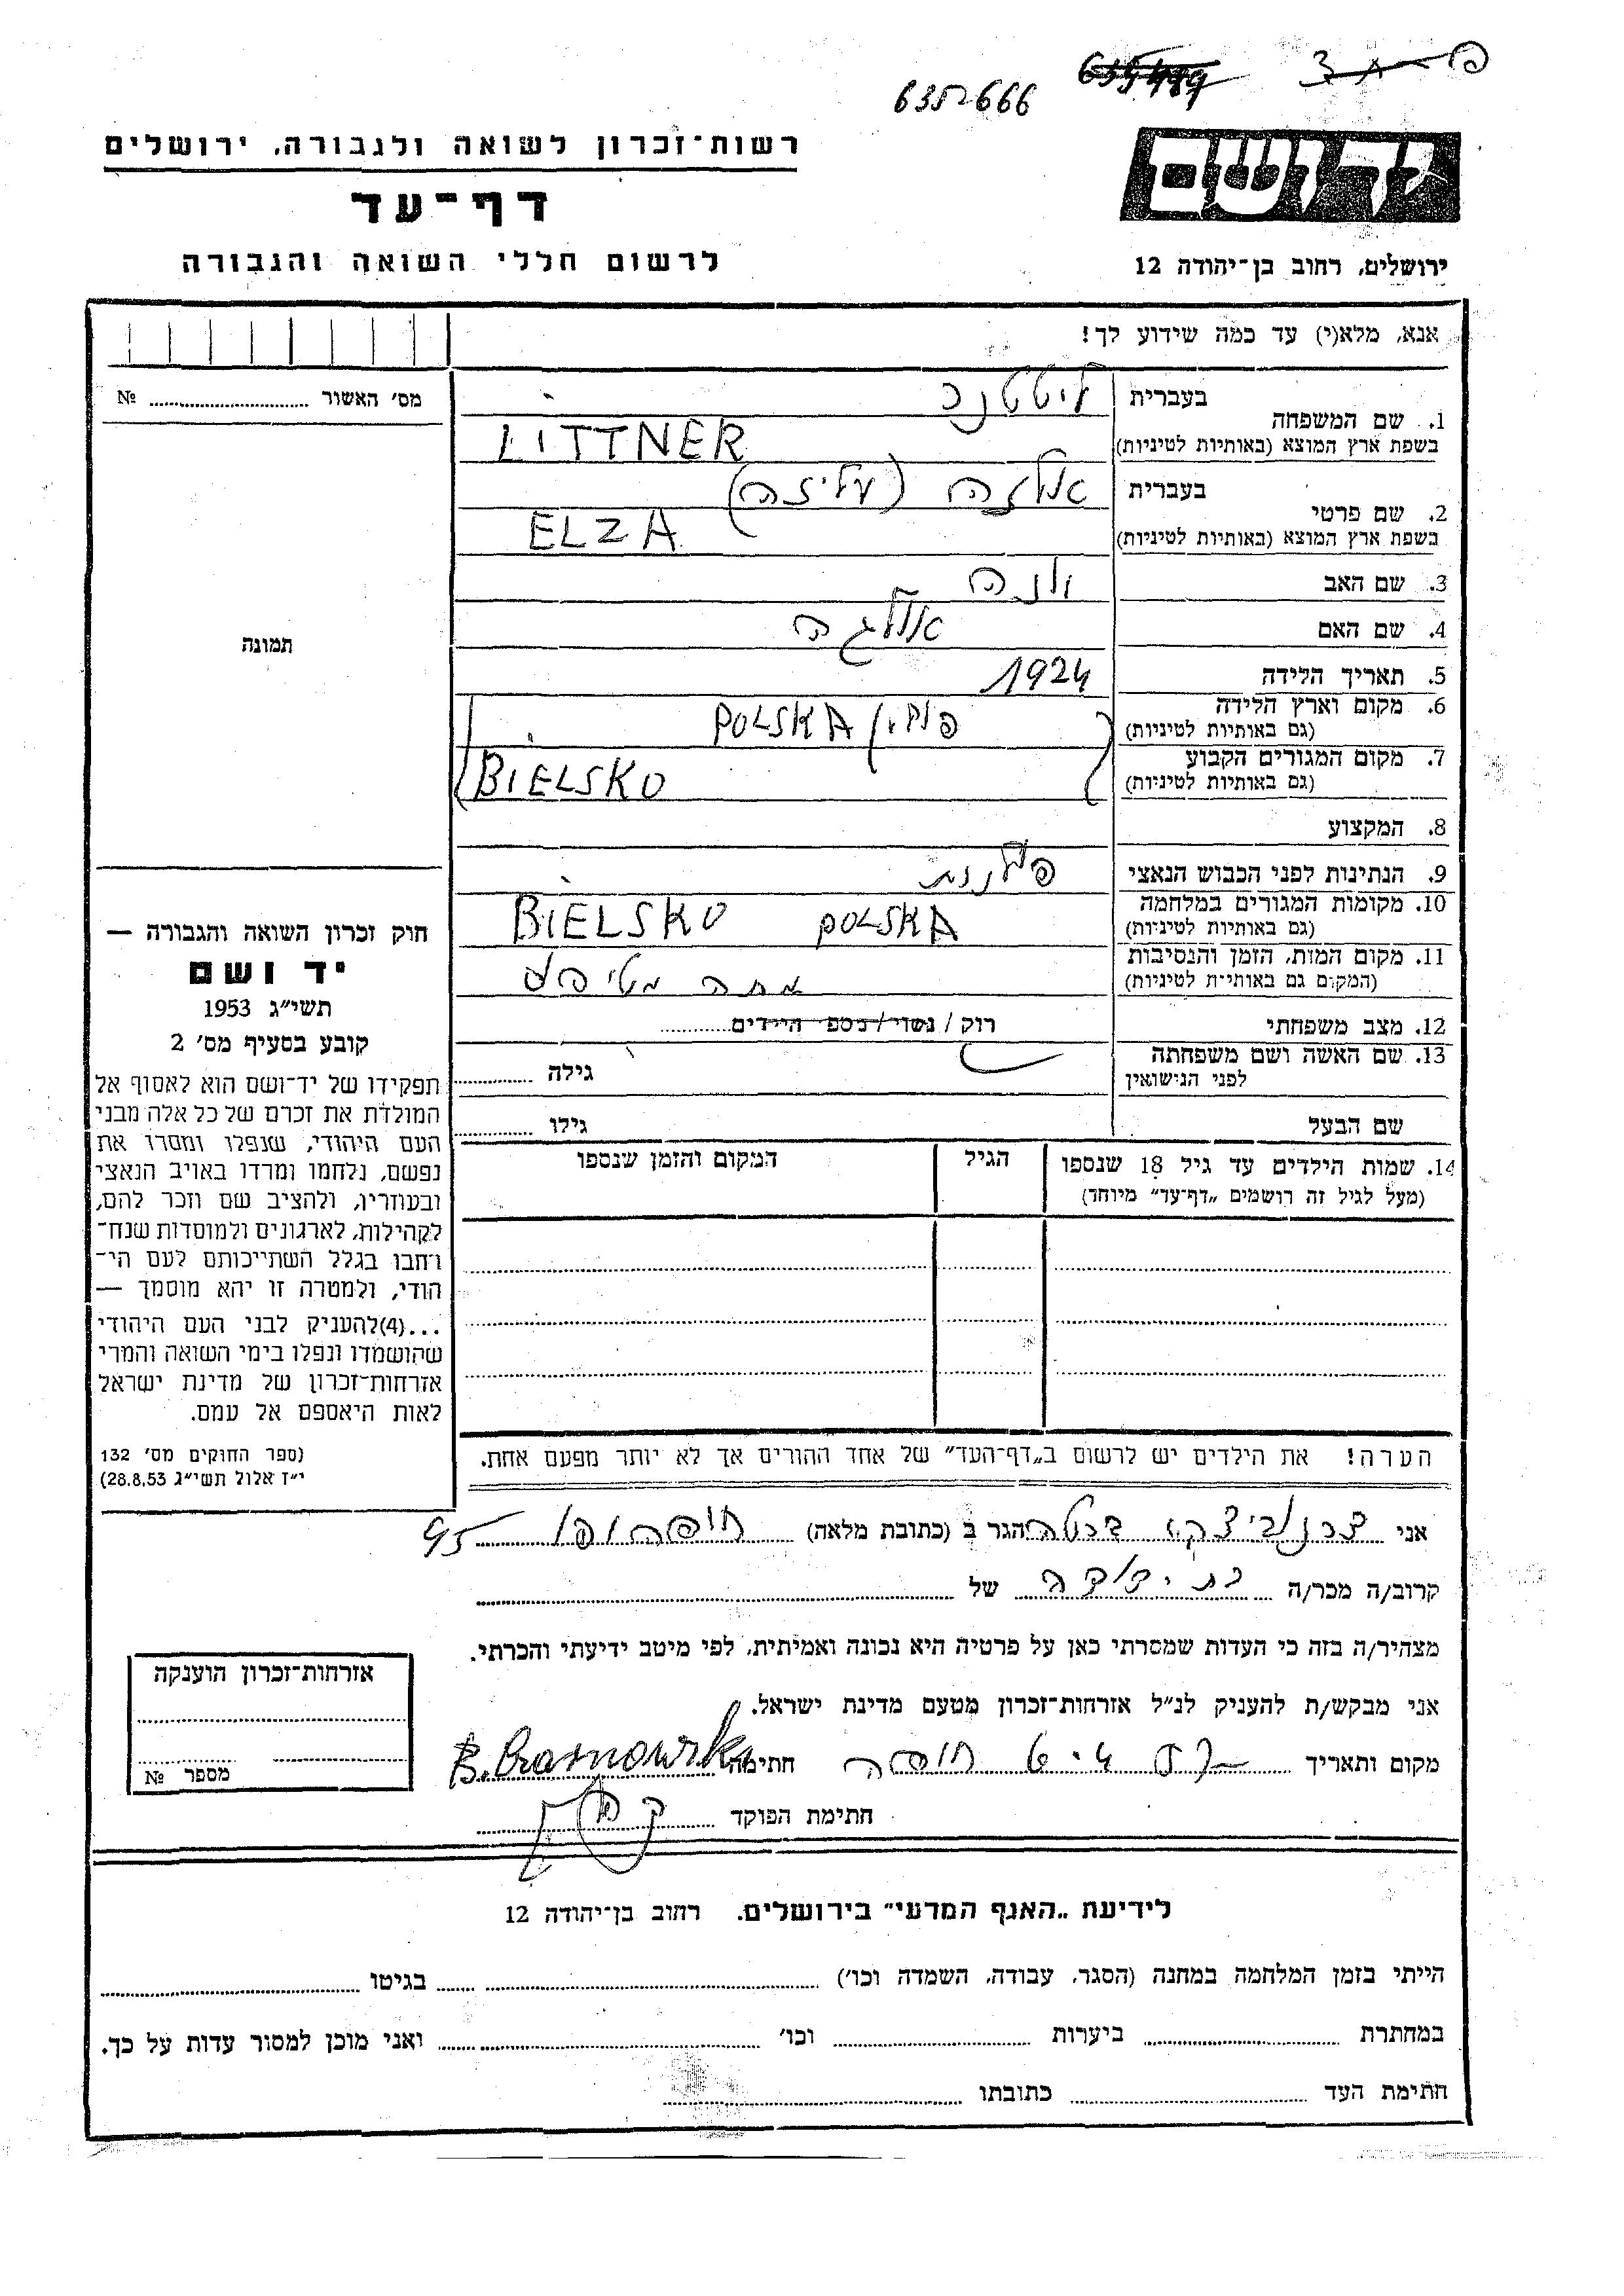 6352666
רשות־זכרון לשואה ולגבורה, ירושלים
דף־עד
לרשום חללי השואה והגבורה
ידושם
ירושלים, רחוב בן־יהודה 12
אנא, מלא(י) עד כמה שידוע לך!
מס׳ האשור № ........
1. שם המשפחה
בעברית ליטטנר
בשפת ארץ המוצא (באותיות לטיניות) LITTNER
2. שם פרטי
בעברית אלזה (עליזה)
בשפת ארץ המוצא (באותיות לטיניות) ELZA
3. שם האב
4. שם האם אולגה
5. תאריך הלידה 1924
6. מקום וארץ הלידה
(גם באותיות לטיניות) פולין POLSKA
7. מקום המגורים הקבוע
(גם באותיות לטיניות) BIELSKO
8. המקצוע
9. הנתינות לפני הכבוש הנאצי פולנית
10. מקומות המגורים במלחמה
(גם באותיות לטיניות) BIELSKO POLSKA
11. מקום המות, הזמן והנסיבות
(המקום גם באותיות לטיניות) מתה מטיפוס
12. מצב משפחתי רוק / נשוי / מספר הילדים........
13. שם האשה ושם משפחתה
לפני הנישואין גילה ........
שם הבעל גילו ........
14. שמות הילדים עד גיל 18 שנספו
(מעל לגיל זה רושמים „דף־עד״ מיוחד)
הגיל
המקום והזמן שנספו
תמונה
חוק זכרון השואה והגבורה —
יד ושם
תשי״ג 1953
קובע בסעיף מס׳ 2
תפקידו של יד־ושם הוא לאסוף אל
המולדת את זכרם של כל אלה מבני
העם היהודי, שנפלו ומסרו את
נפשם, נלחמו ומרדו באויב הנאצי
ובעוזריו, ולהציב שם וזכר להם,
לקהילות, לארגונים ולמוסדות שנח־
רחבו בגלל השתייכותם לעם הי־
הודי, ולמטרה זו יהא מוסמך —
...(4)להעניק לבני העם היהודי
שהושמדו ונפלו בימי השואה והמרי
אזרחות־זכרון של מדינת ישראל
לאות היאספם אל עמם.
(ספר החוקים מס׳ 132
י״ז אלול תשי״ג 28.8.53)
הערה! את הילדים יש לרשום ב„דף־העד״ של אחד ההורים אך לא יותר מפעם אחת.
אני ברטה הגר ב (כתובת מלאה) 95
קרוב/ה מכר/ה בת דודה של ........
מצהיר/ה בזה כי העדות שמסרתי כאן על פרטיה היא נכונה ואמיתית, לפי מיטב ידיעתי והכרתי.
אני מבקש/ת להעניק לנ״ל אזרחות־זכרון מטעם מדינת ישראל.
מקום ותאריך חיפה חתימה
חתימת הפוקד
אזרחות־זכרון הוענקה
מספר №
לידיעת „האגף המדעי״ בירושלים, רחוב בן־יהודה 12
הייתי בזמן המלחמה במחנה (הסגר, עבודה, השמדה וכו׳) ........ בגיטו ........
במחתרת ........ ביערות ........ וכו׳ ........ ואני מוכן למסור עדות על כך.
חתימת העד ........ כתובתו ........